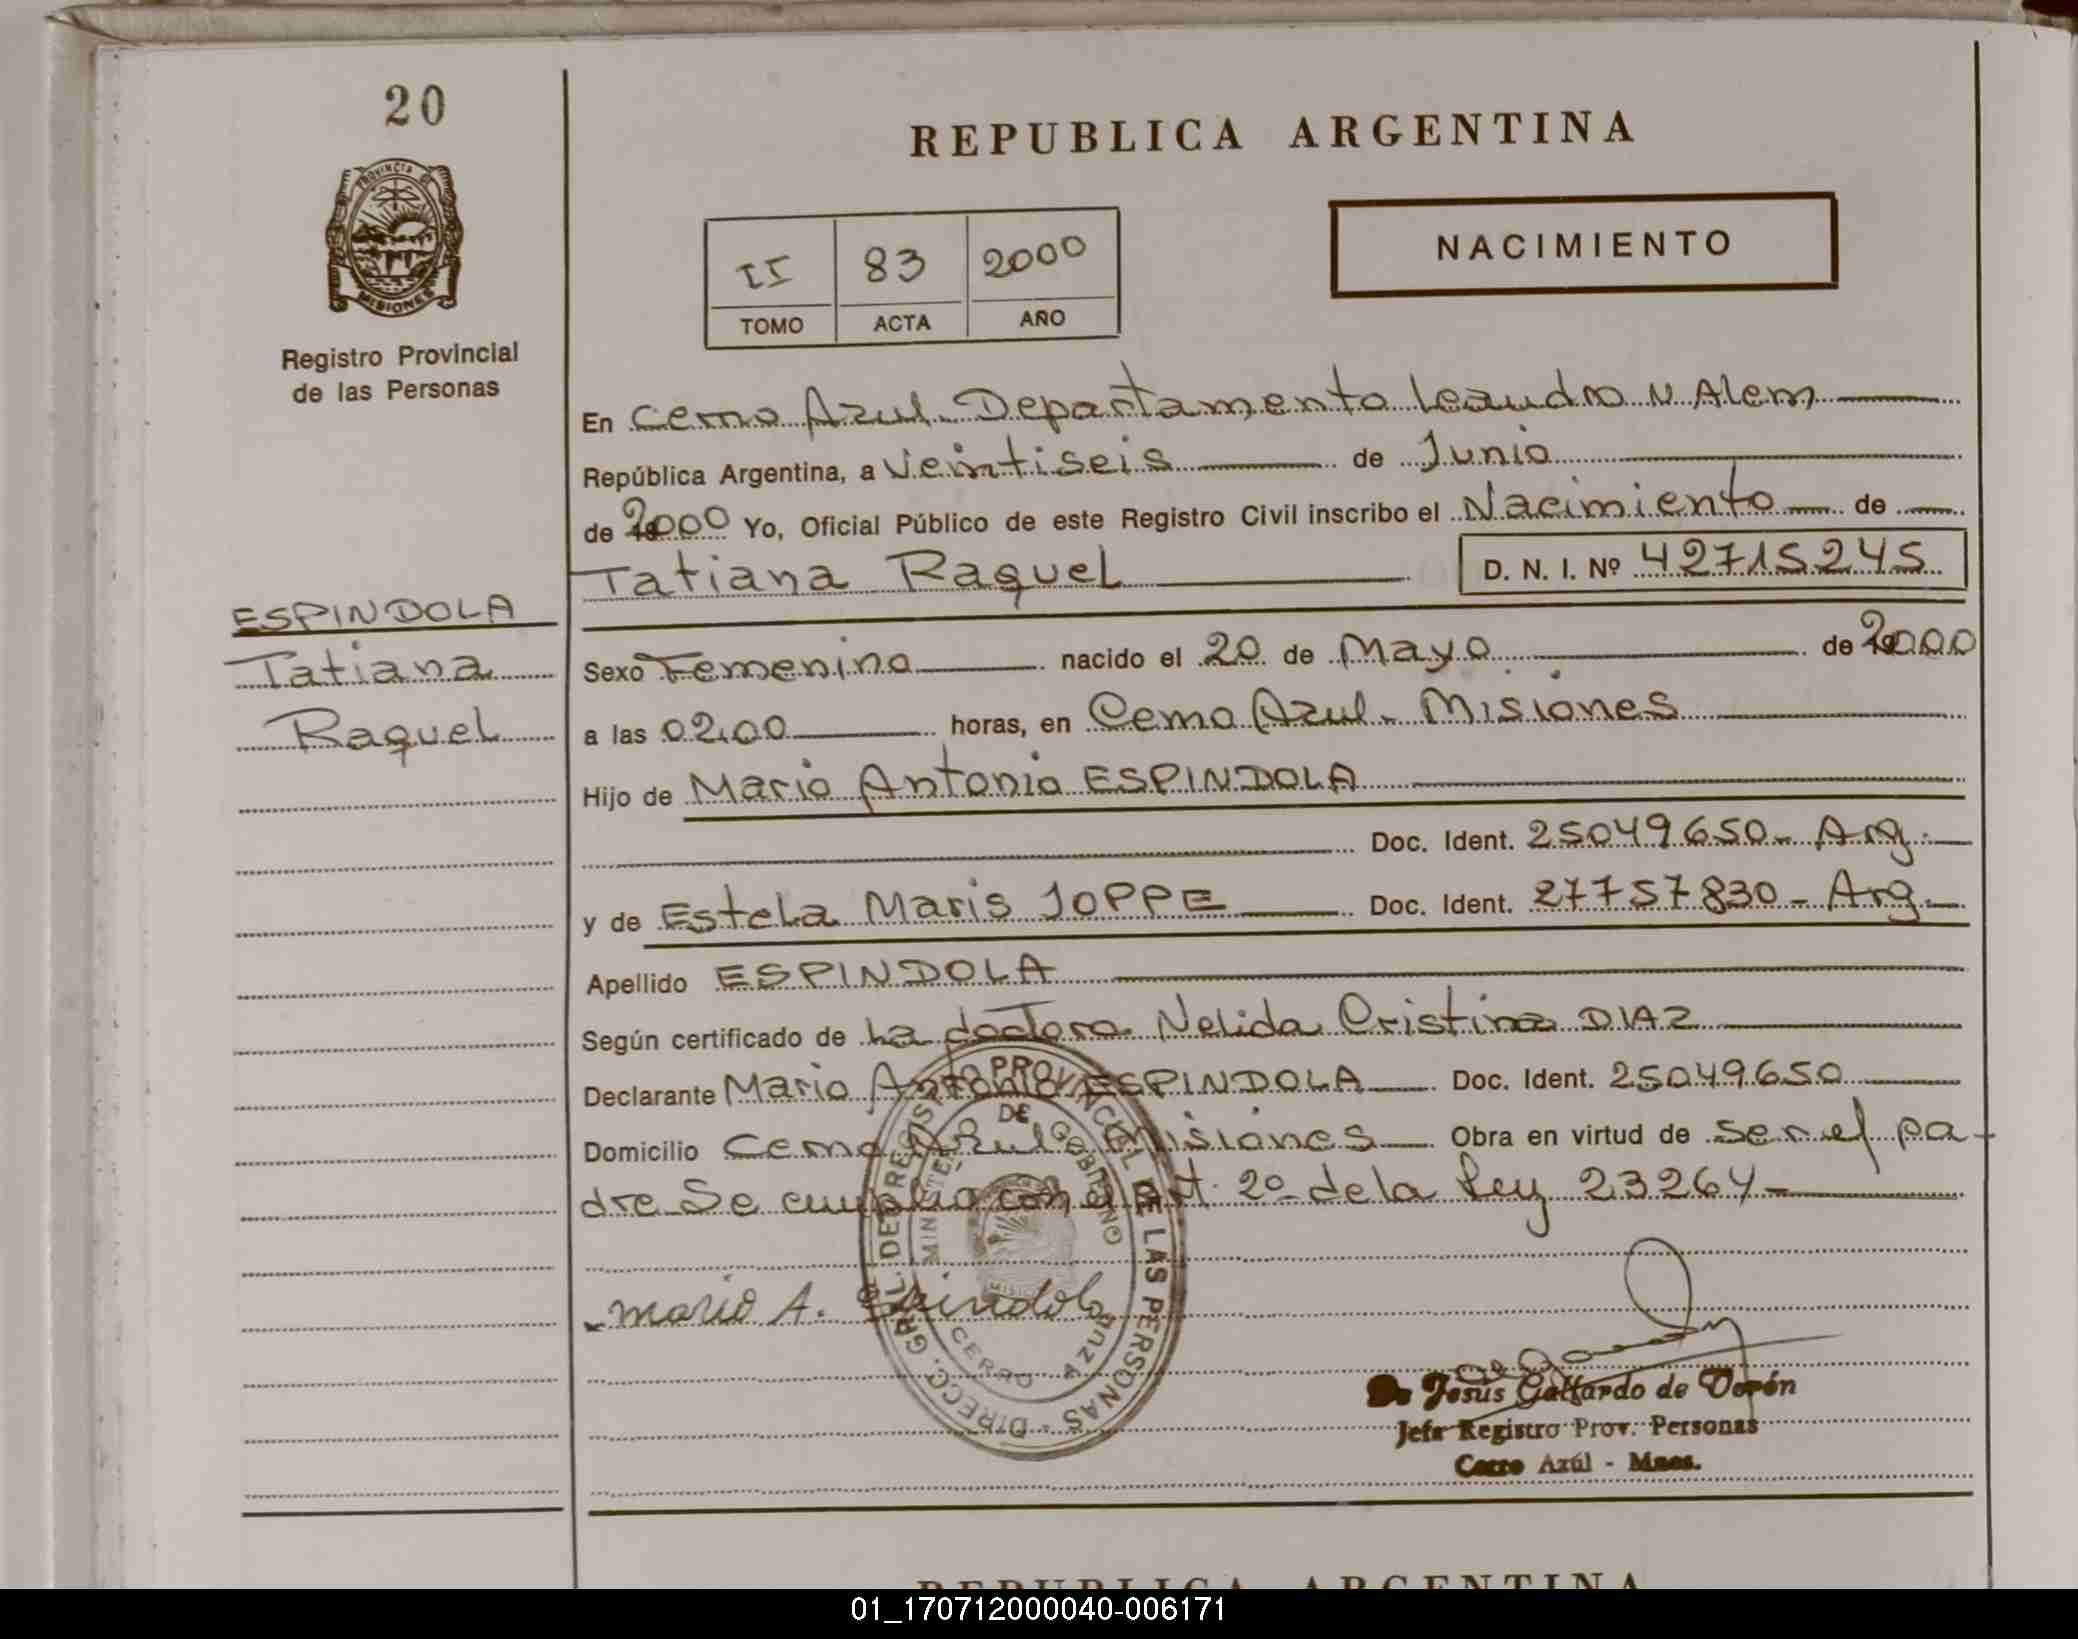 20
PROVINCIA DE
MISIONES
Registro Provincial
de las Personas
ESPINDOLA
Tatiana
Raquel
REPUBLICA ARGENTINA
II 83 2000
TOMO ACTA AÑO
NACIMIENTO
En Cerro Azul Departamento Leandro N. Alem
República Argentina, a Veintiseis de Junio
de 2000 Yo, Oficial Público de este Registro Civil inscribo el Nacimiento de
Tatiana Raquel D. N. I. Nº 42715245
Sexo Femenino nacido el 20 de Mayo de 2000
a las 02,00 horas, en Cerro Azul - Misiones
Hijo de Mario Antonio ESPINDOLA
Doc. Ident. 25049650 - Arg.
y de Estela Maris JOPPE Doc. Ident. 27757830 - Arg.
Apellido ESPINDOLA
Según certificado de La doctora Nelida Cristina DIAZ
Declarante Mario Antonio ESPINDOLA Doc. Ident. 25049650
Domicilio Cerro Azul - Misiones Obra en virtud de ser el pa-
dre Se cumplio con el Art. 2º de la Ley 23264 -
Mario A. Espindola
DIRECC. GRAL. DE REGISTRO PROVINCIAL DE LAS PERSONAS -
MINISTERIO DE GOBIERNO
CERRO AZUL
Jesús Gallardo de Dorón
Jefe Registro Prov. Personas
Cerro Azúl - Mnes.
REPUBLICA ARGENTINA
01_170712000040-006171